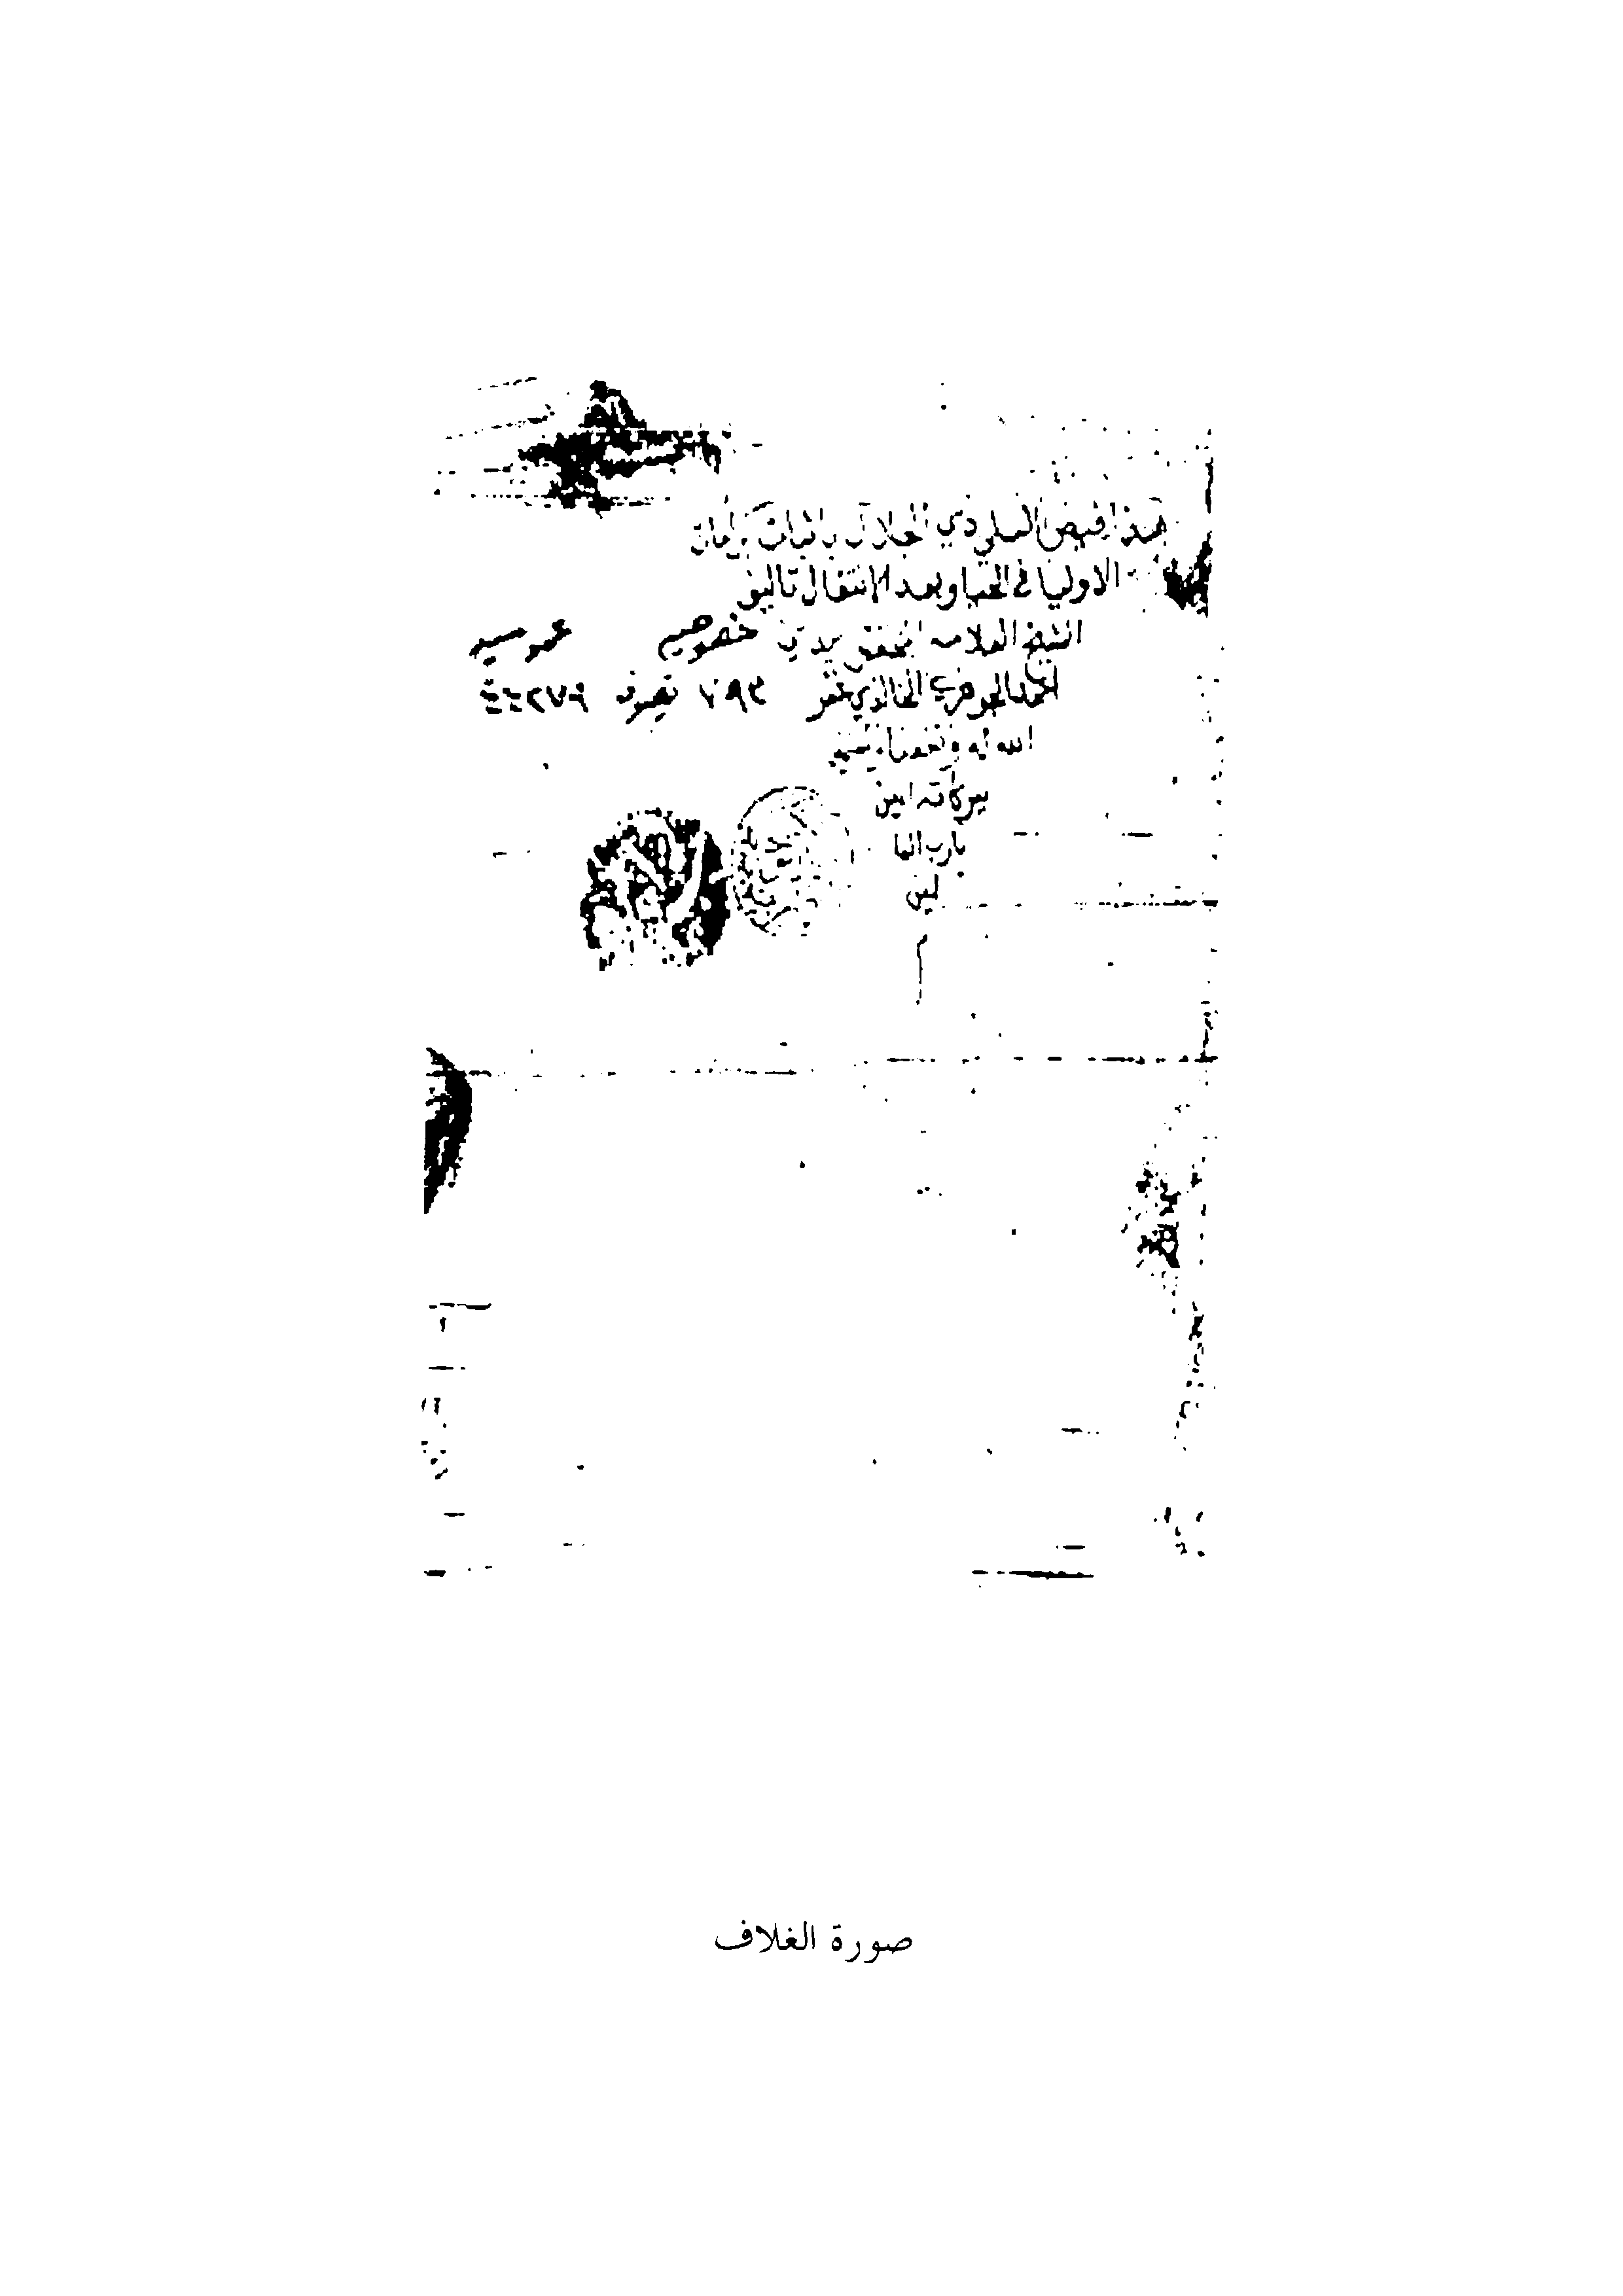 هذا فيض العلي ذي الجلال باثبات كرامات
الاوليا في الحيا وبعد الانتقال تاليف
الشيخ العلامه المحقق سيدي
احمد الجوهري الخالدي غفر
الله له ونفعنا
ببركاته امين
يارب العا
لمين
خصوصيه عموميه
٧٩٣ تصوف ٤٤٢٧٩
صورة الغلاف